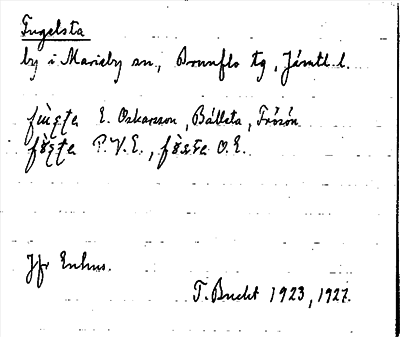 Fugelsta
by i Marieby sn., Brunflo tg, Jämtl. l.
E. Oskarsson, Bälleta, Frösön
P.V.E., O.E.
Jfr Enhus.
T. Bucht 1923, 1927.